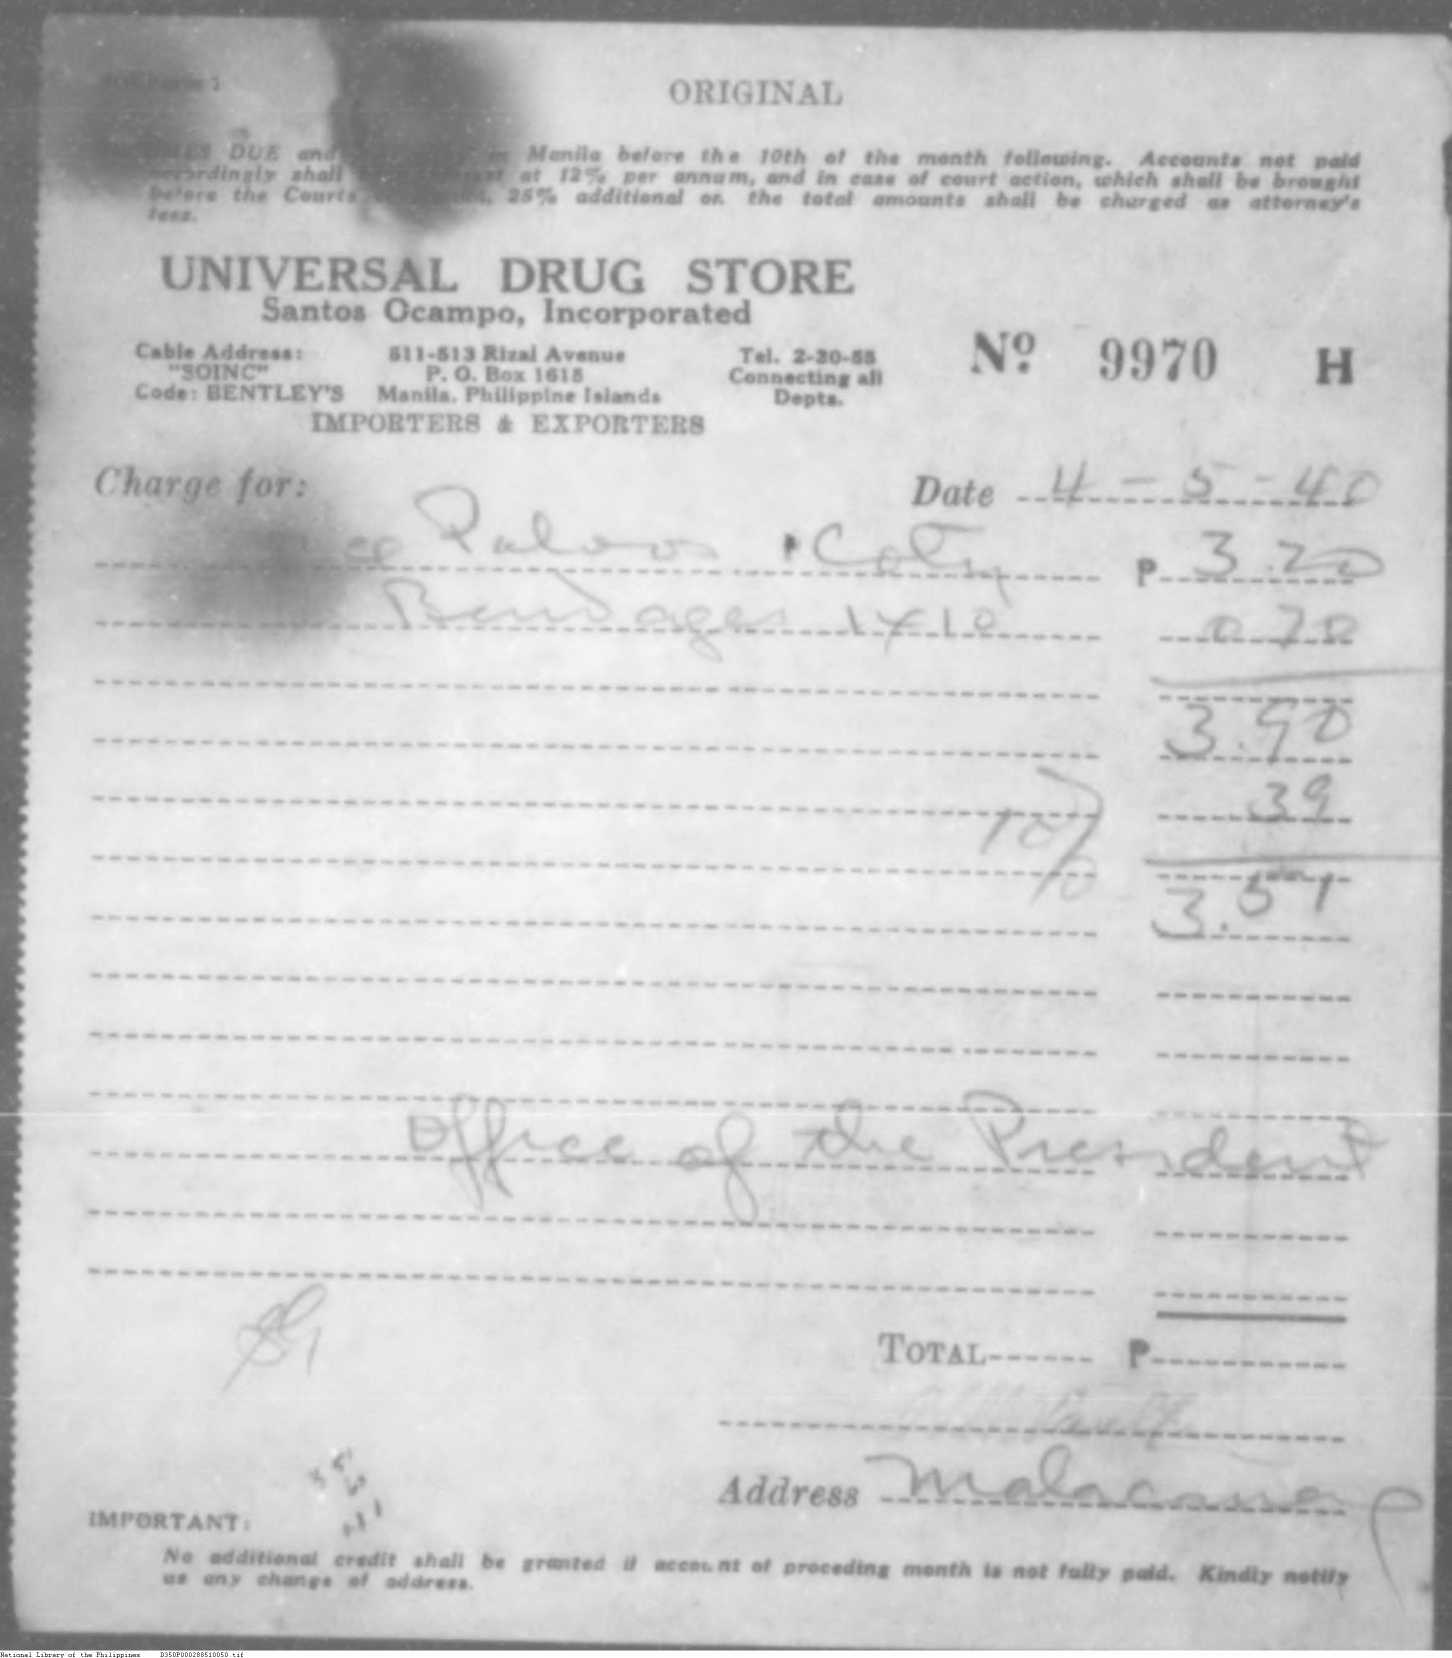 ORIGINAL
DUE and Manila before the 10th of the month following. Accounts not paid
accordingly shall at 12% per annum, and in case of court action, which shall be brought
before the Courts 25% additional on the total amounts shall be charged as attorney's
fees.
UNIVERSAL DRUG STORE
Santos Ocampo, Incorporated
Cable Address: 511-513 Rizal Avenue Tel. 2-30-55
"SOINC" P. O. Box 1615 Connecting all
Code: BENTLEY'S Manila, Philippine Islands Depts.
IMPORTERS & EXPORTERS
Nº 9970 H
Charge for: Date 4-5-40
Coty ₱ 3.20
Bandages 1x10 0.70
3.90
10% .39
3.51
Office of the President
TOTAL ₱
Address Malacanang
IMPORTANT:
No additional credit shall be granted if account of proceding month is not fully paid. Kindly notify
us any change of address.
National Library of the Philippines D350P000288510050.tif